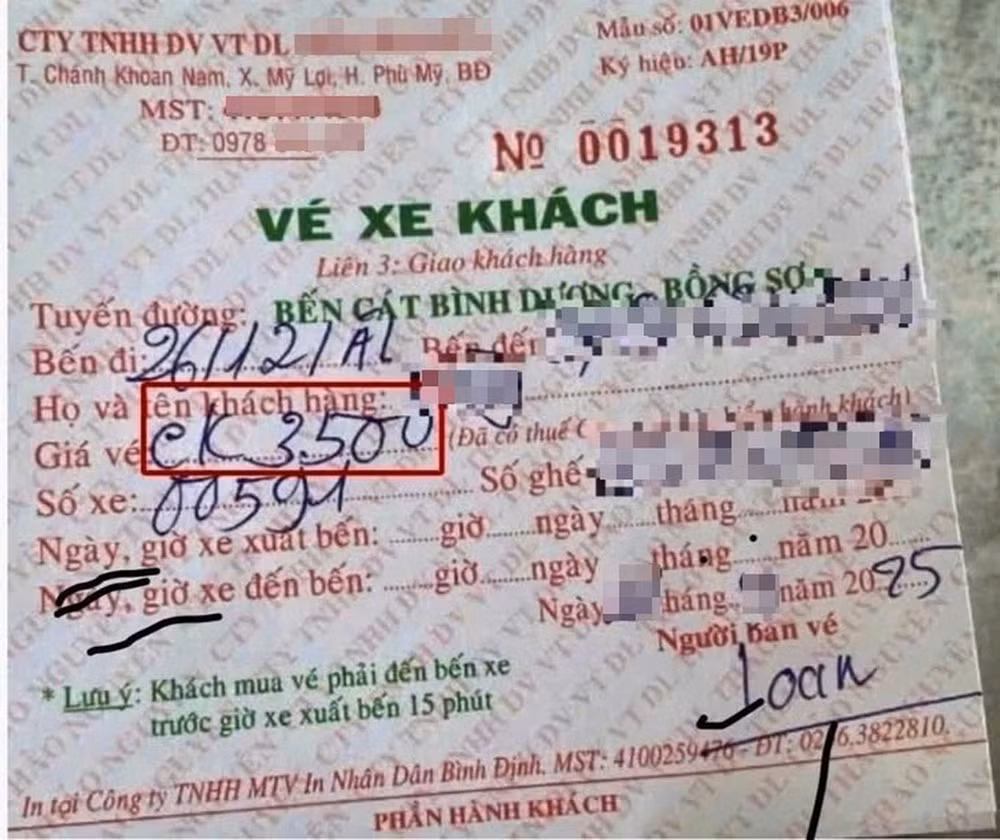 CTY TNHH DV VT DL
T. Chánh Khoan Nam, X. Mỹ Lợi, H. Phù Mỹ, BĐ
MST:
ĐT: 0978
Mẫu số: 01VEDB3/006
Ký hiệu: AH/19P
Nº 0019313
VÉ XE KHÁCH
Liên 3: Giao khách hàng
Tuyến đường: BẾN CÁT BÌNH DƯƠNG - BỒNG SƠ
Bến đi: 26/12/Al Bến đến
Họ và tên khách hàng:
Giá vé CK 3500 (Đã có thuế hành khách)
Số xe: 00591 Số ghế
Ngày, giờ xe xuất bến: ......giờ......ngày......tháng......năm 20
Ngày, giờ xe đến bến: ......giờ......ngày tháng......năm 20
Ngày tháng năm 2025
Người bán vé
Loan
* Lưu ý: Khách mua vé phải đến bến xe
trước giờ xe xuất bến 15 phút
In tại Công ty TNHH MTV In Nhân Dân Bình Định. MST: 4100259476 - ĐT: 02 6.3822810.
PHẦN HÀNH KHÁCH